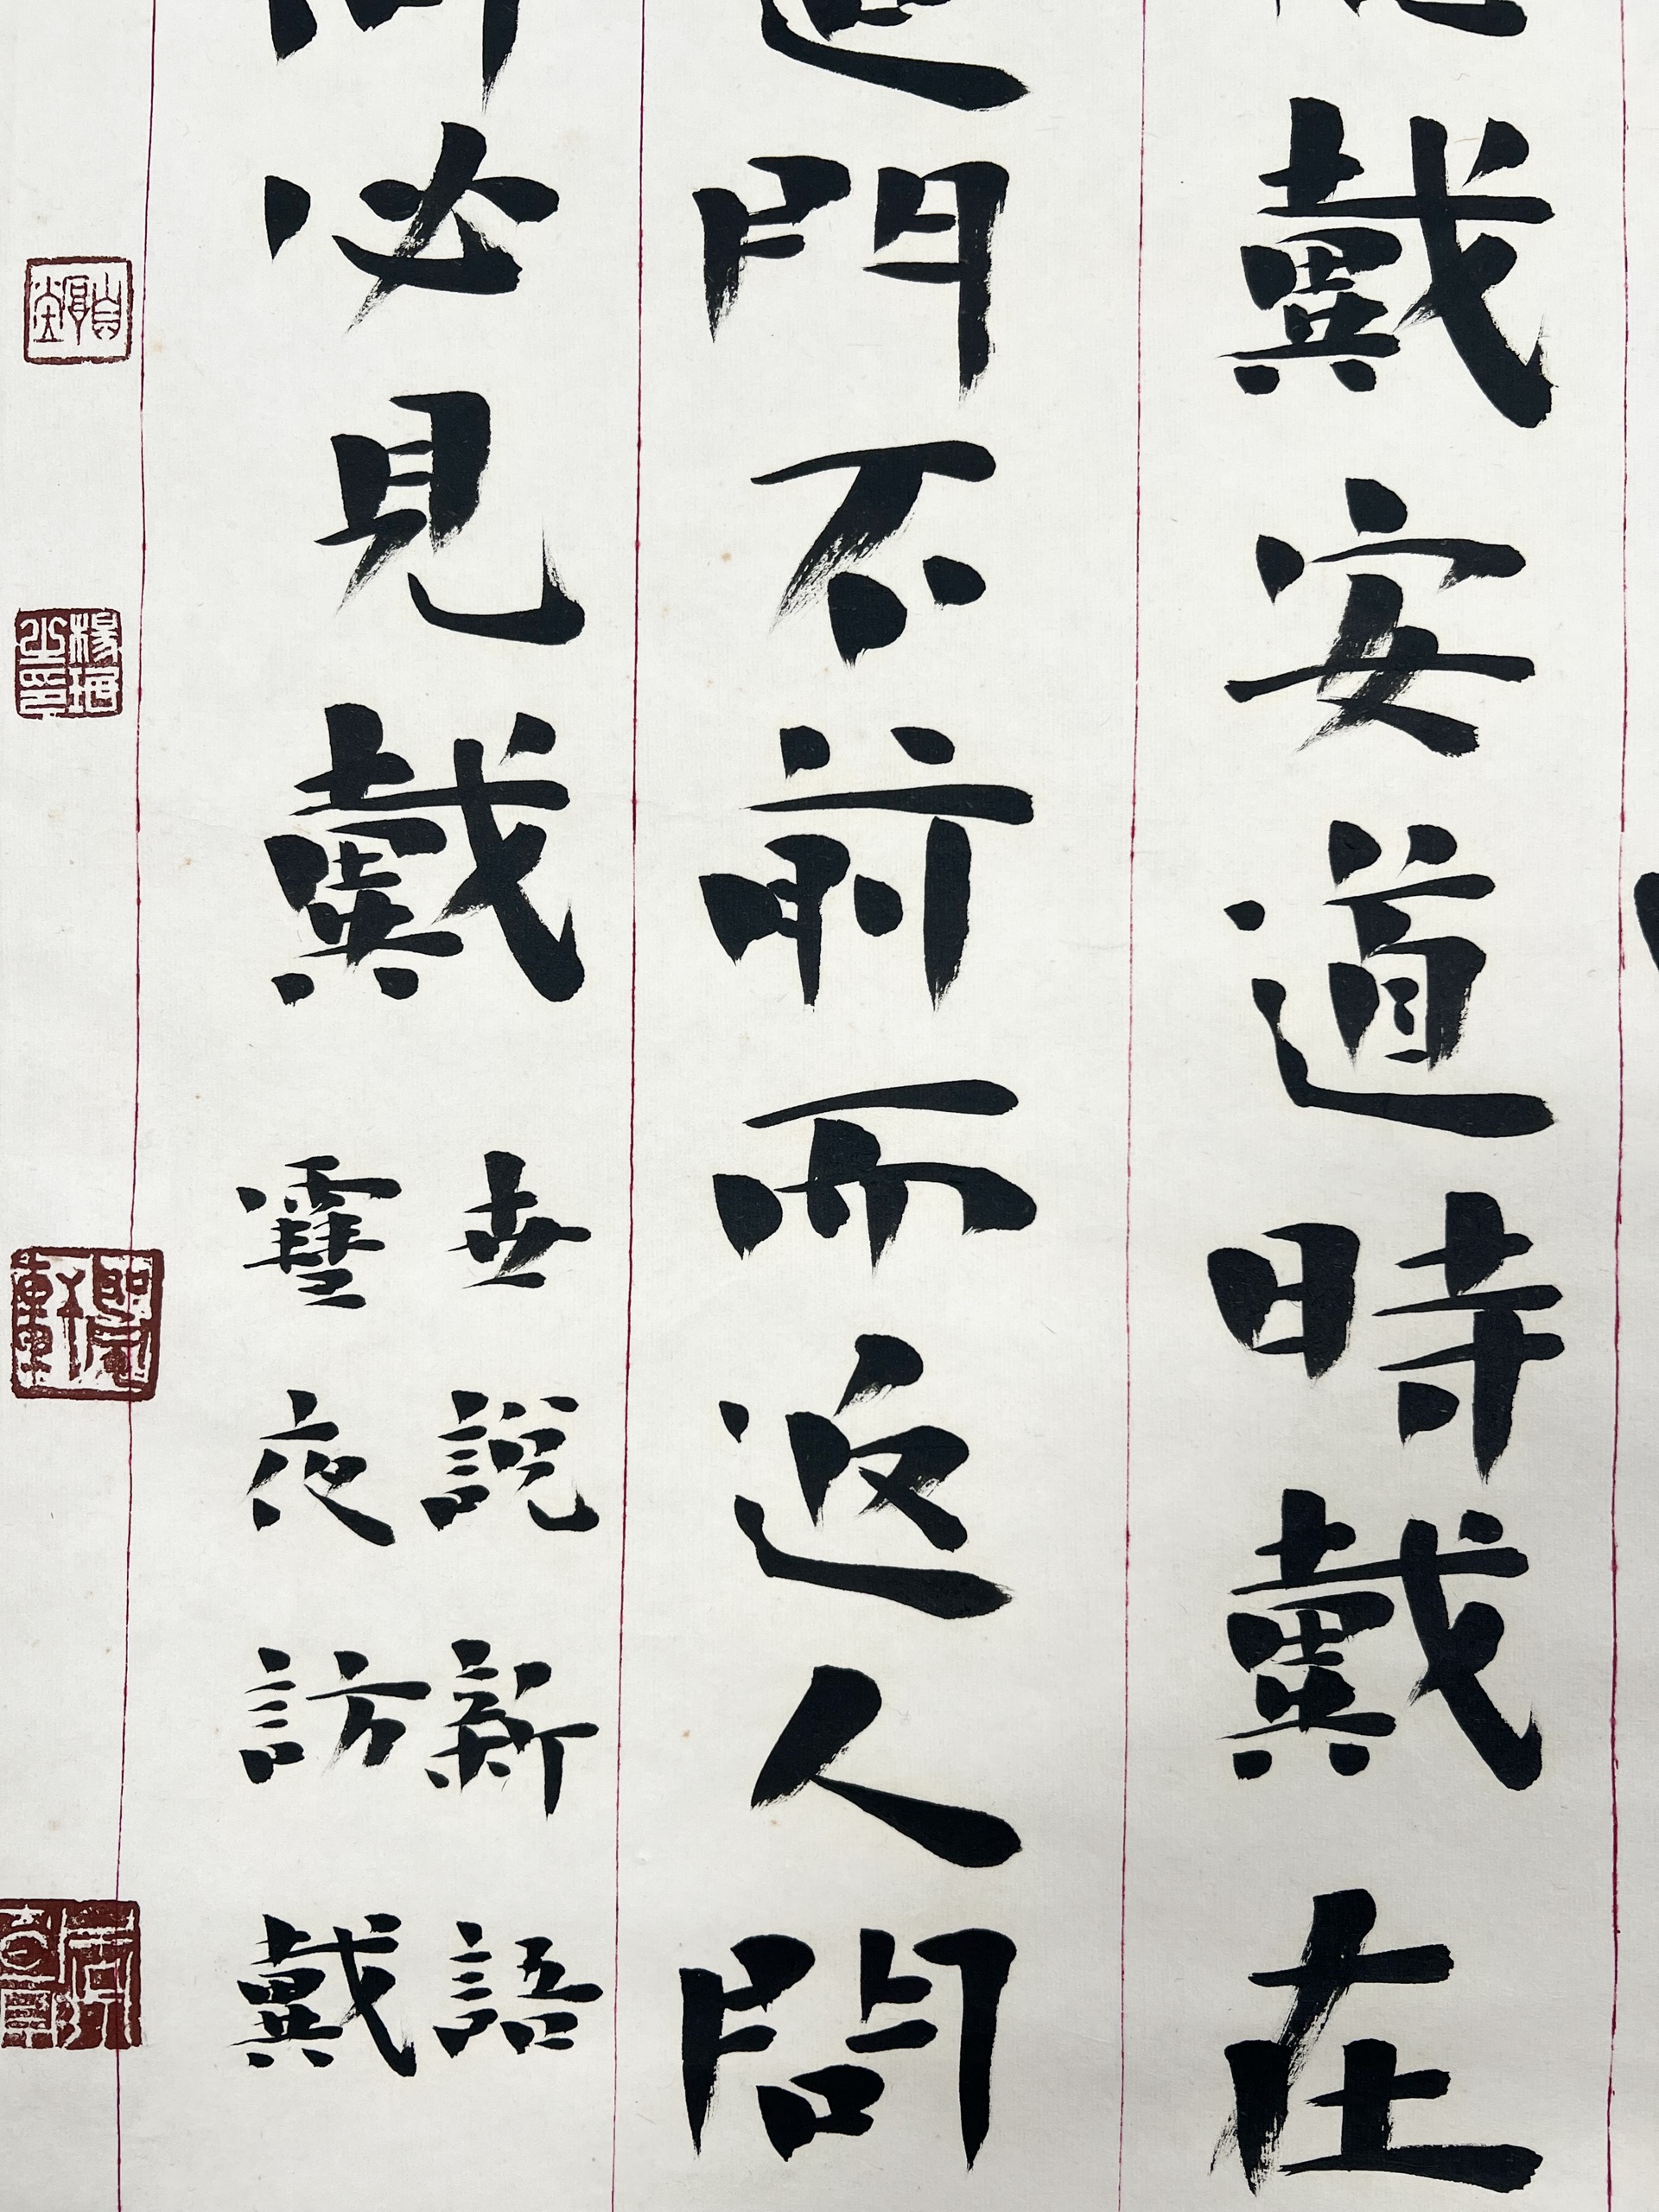 戴安道時戴在
門不前而返人問
必見戴
世說新語
雪夜訪戴
楊珺之印